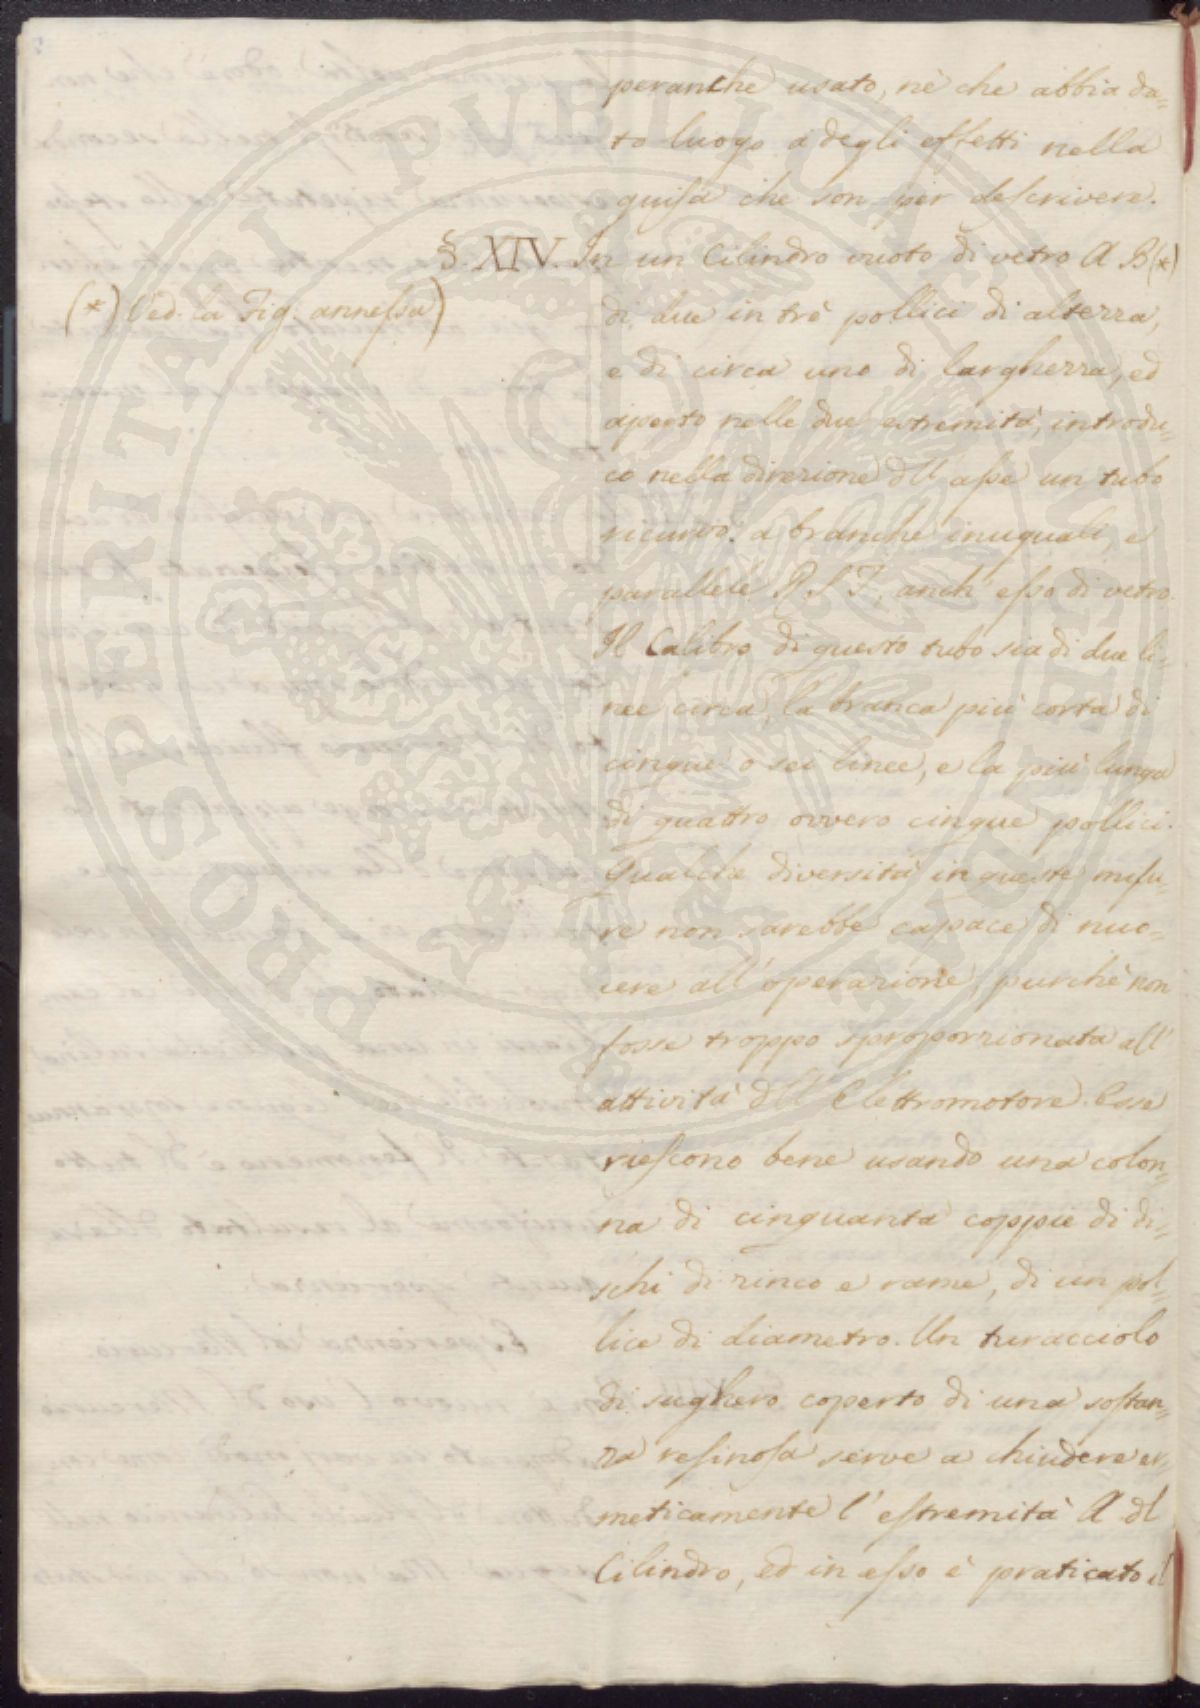 peranche usato, nè che abbia da=
to luogo a degli effetti nella
guisa che son per descrivere.
§. XIV. In un Cilindro vuoto di vetro A B (*)
(*) Ved. la Fig. annessa)
di due in trè pollici di altezza,
e di circa uno di larghezza, ed
aperto nelle due estremità, introdu=
co nella direzione dll' asse un tubo
ricurvo a branche inuguali, e
parallele R S T, anch' esso di vetro.
Il Calibro di questo tubo sia di due li=
nee circa, la branca più corta di
cinque o sei linee, e la più lunga
di quattro ovvero cinque pollici.
Qualche diversità in queste misu=
re non sarebbe capace di nuo=
cere all' operazione, purchè non
fosse troppo sproporzionata all'
attività dll' Elettromotore. Esse
riescono bene usando una colon=
na di cinquanta coppie di di=
schi di zinco e rame, di un pol=
lice di diametro. Un turacciolo
di sughero coperto di una sostan=
za resinosa serve a chiudere er=
meticamente l' estremità A dl
Cilindro, ed in esso è praticato il
PROSPERITATI PVBLICAE AVGENDAE